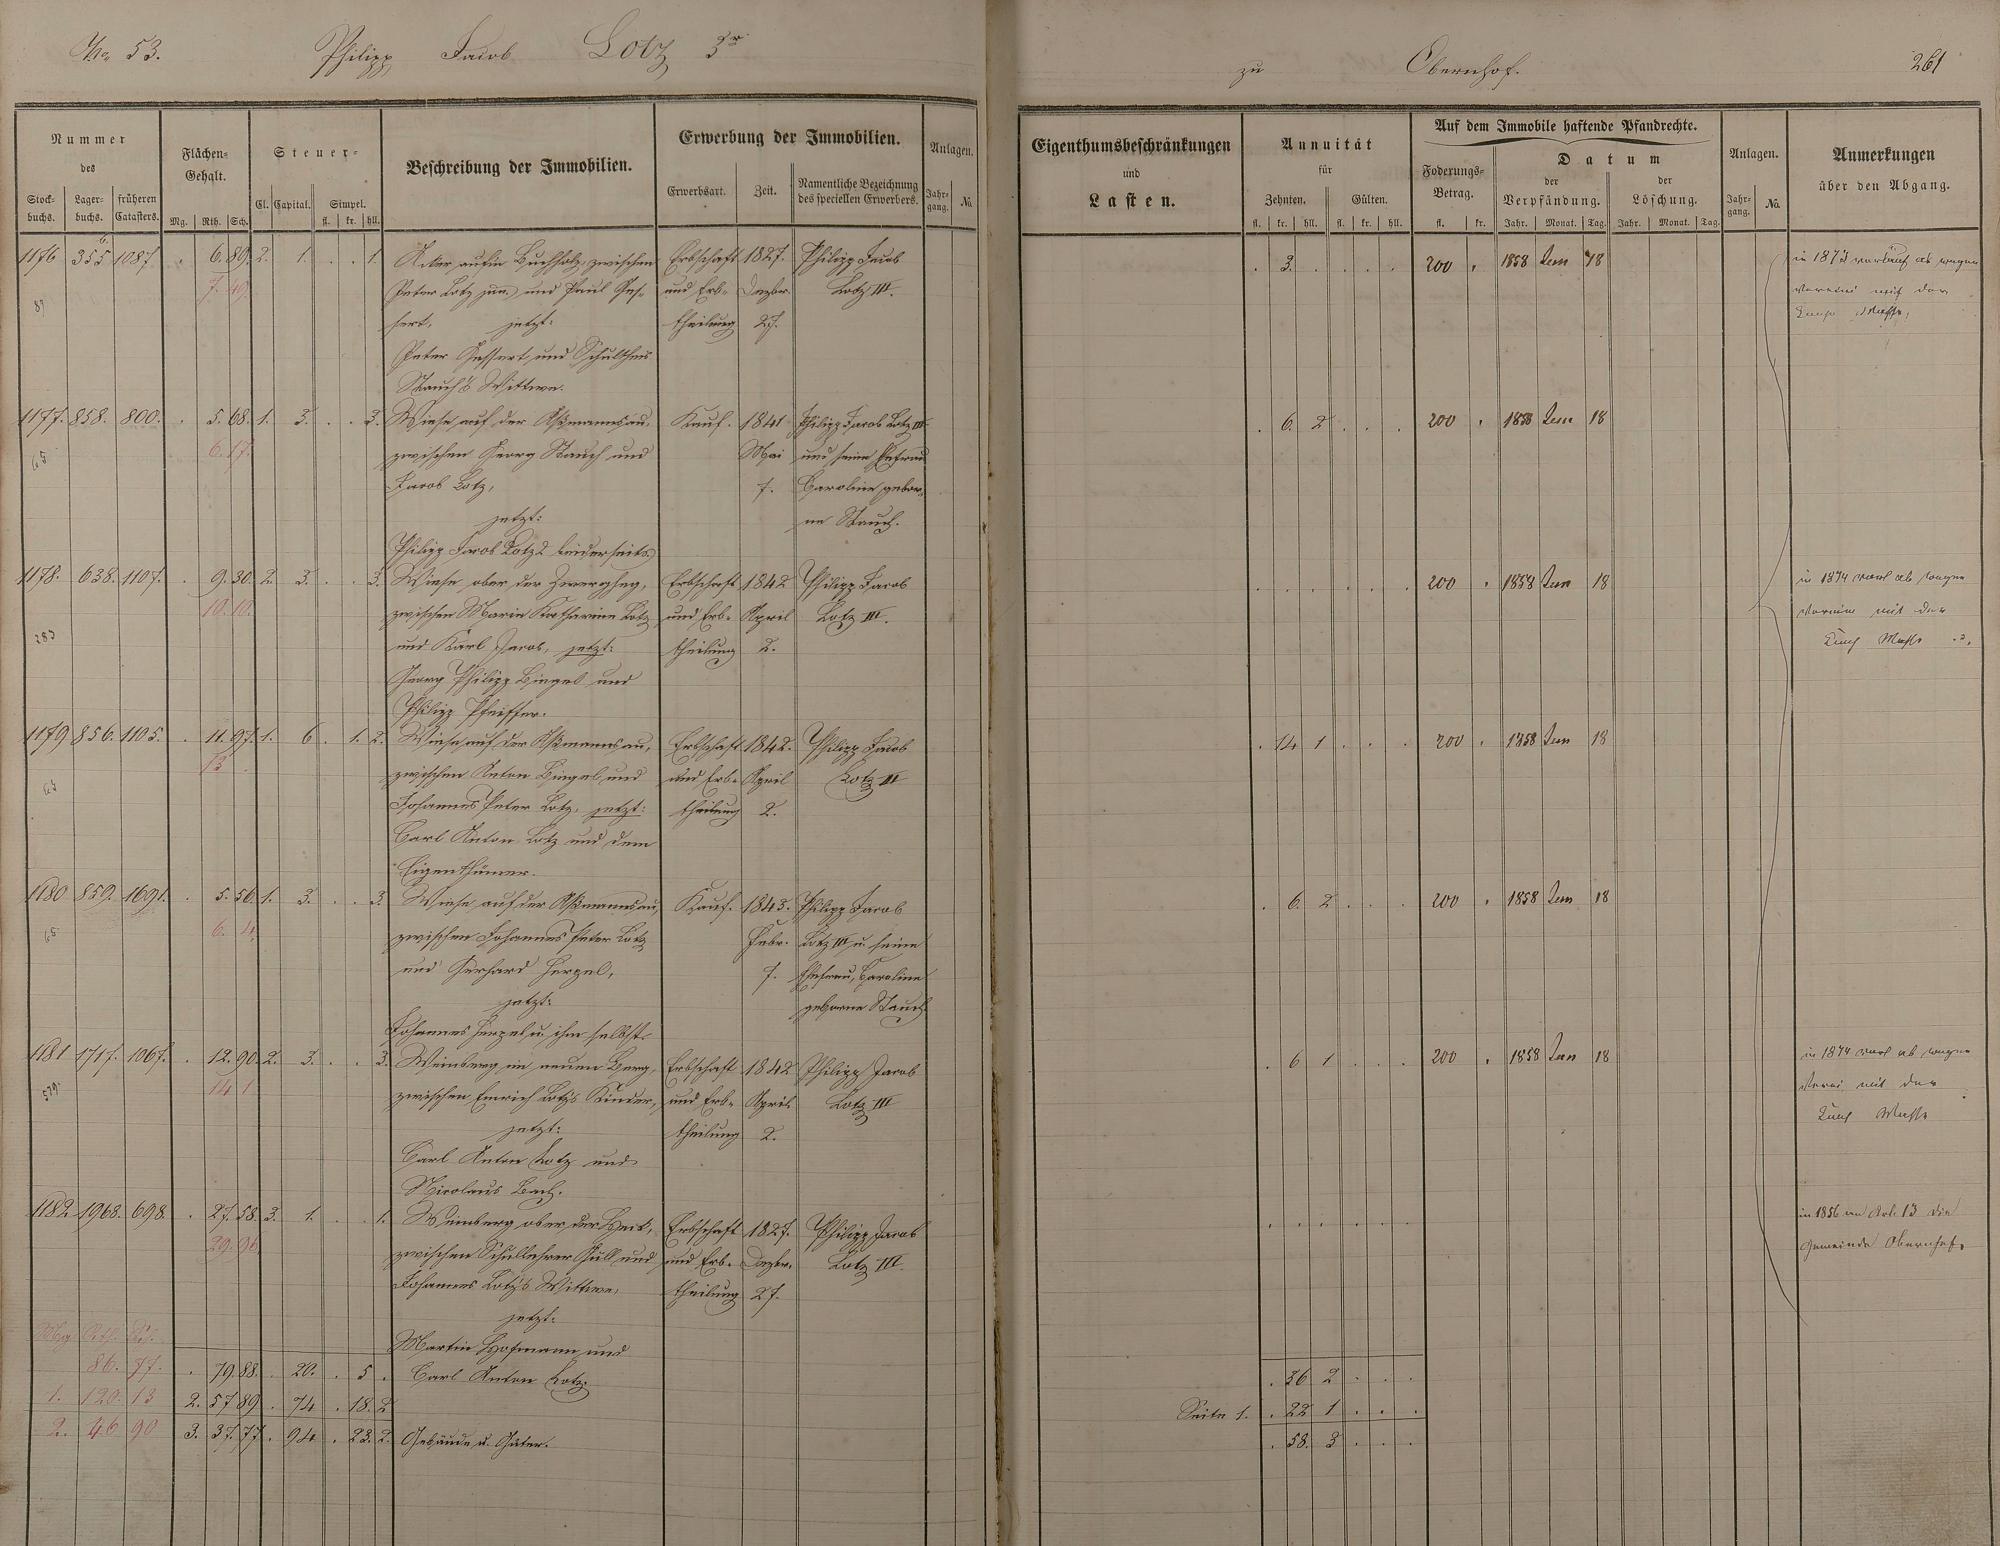 No. 53. Philipp Jacob Lotz 3r
zu Obernhof. 261
Nummer
des
Stock-buchs. Lager-buchs. früheren Catasters.
Flächen-Gehalt.
Mg. Rth. Sch.
Steuer-
Cl. Capital. Simpel.
fl. kr. hll.
Beschreibung der Immobilien.
Erwerbung der Immobilien.
Erwerbsart. Zeit. Namentliche Bezeichnung des speciellen Erwerbers.
Anlagen.
Jahr-gang. No.
Eigenthumsbeschränkungen
und
Lasten.
Annuität
für
Zehnten. Gülten.
fl. kr. hll. fl. kr. hll.
Auf dem Immobile haftende Pfandrechte.
Foderungs-Betrag.
fl. kr.
Datum
der Verpfändung. der Löschung.
Jahr. Monat. Tag. Jahr. Monat. Tag.
Anlagen.
Jahr-gang. No.
Anmerkungen
über den Abgang.
1176 355 1087. . 6. 89. 2. 1. . . 1. Acker auf'm Buchholz, zwischen Erbschaft 1827. Philipp Jacob . 3. 200 . 1858 Jan 18
7. 49 Peter Lotz jun. und Paul Ges- und Erb- Dezbr. Lotz III.
sert, jetzt: theilung 27.
Peter Gessert und Schultheis
Stauch's Wittwe.
1177. 858. 800. . 5. 68. 1. 3. . . 3. Wiese auf der Aßmannsau, Kauf. 1841 Philipp Jacob Lotz III . 6. 2 . . . 200 . 1858 Jan 18
65 6. 17. zwischen Georg Stauch und Mai und seine Ehefrau
Jacob Lotz, 7. Caroline gebor-
jetzt: ne Stauch.
Philipp Jacob Lotz 2 beiderseits
1178. 638. 1107. . 9. 30. 2. 3. . . 3. Wiese ober der Zwergheg, Erbschaft 1842 Philipp Jacob . . . . . . 200 . 1858 Jan 18
10. 10. zwischen Marie Katharine Lotz und Erb- April Lotz III.
283 und Karl Jacob, jetzt: theilung 2.
Georg Philipp Bingel und
Philipp Pfeiffer.
1179 856. 1105. . 11. 97. 1. 6 . 1. 2. Wiese auf der Aßmannsau, Erbschaft 1842. Philipp Jacob . 14 1 . . . 200 . 1858 Jan 18
13 . zwischen Anton Bingel und und Erb- April Lotz III
63 Johannes Peter Lotz, jetzt: theilung 2.
Carl Anton Lotz und dem
Eigenthümer.
1180 859. 1691. . 5. 56. 1. 3. . . 3. Wiese auf der Aßmannsau, Kauf. 1843. Philipp Jacob . 6. 2 . . . 200 . 1858 Jan 18
65 6. 4. zwischen Johannes Peter Lotz Febr. Lotz III u. seine
und Gerhard Hergel, 7. Ehefrau, Caroline
jetzt: geborne Stauch.
Johannes Hergel u. ihm selbst.
1181 1717. 1067. . 12. 90. 2. 3. . . 3. Weinberg im neuen Berg, Erbschaft 1842 Philipp Jacob . 6 1 . . . 200 . 1858 Jan 18
579. 14 1 zwischen Emrich Lotz's Kinder, und Erb- April Lotz III
jetzt: theilung 2.
Carl Anton Lotz und
Nicolaus Bach.
in 1874
1182 1968. 698. . 27. 58. 3. 1. . . 1. Weinberg ober der Heck, Erbschaft 1827. Philipp Jacob . . . . . . in 1856 13 die
29. 96 zwischen Schullehrer Güll und und Erb- Dezbr. Lotz III. Gemeinde Obernhof.
Johannes Lotz's Wittwe, theilung 27.
jetzt:
Mrg. Rth. Sch. Martin Hofmann und
86. 77. . 79. 88. . 20. . 5 . Carl Anton Lotz. . 36 2 . . .
1. 120. 13 2. 57 89 . 74 . 18. 2 Seite 1. . 22 1 . . .
2. 46 90 3. 37. 77 . 94 . 23. 2. Gebäude u. Güter. . 58. 3 . . .